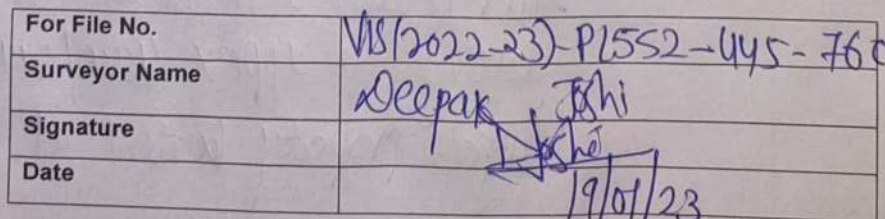 For File No. VIS(2022-23)-PL552-445-760
Surveyor Name Deepak Joshi
Signature Joshi
Date 19/01/23